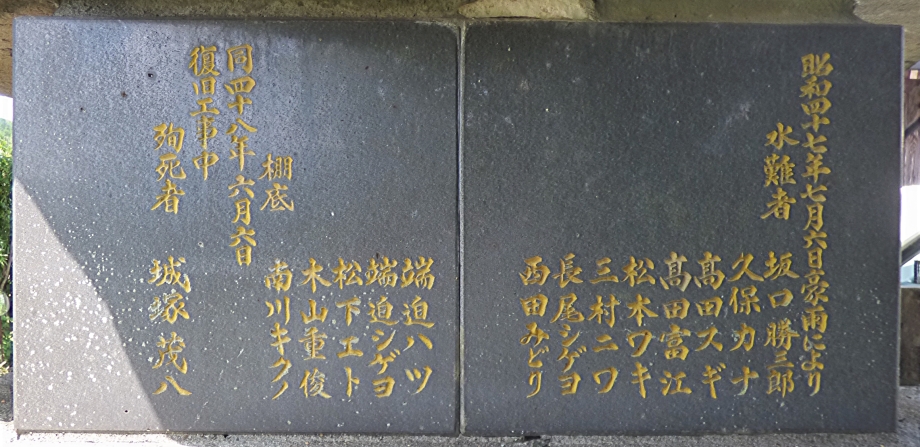 昭和四十七年七月六日豪雨により
水難者
坂口勝三郎
久保カナ
髙田スギ
髙田富江
松本ワキ
三村ニワ
長尾シゲヨ
西田みどり
端迫ハツ
端迫シゲヨ
松下エト
木山重俊
棚底 南川キクノ
同四十八年六月六日
復旧工事中
殉死者 城塚茂八